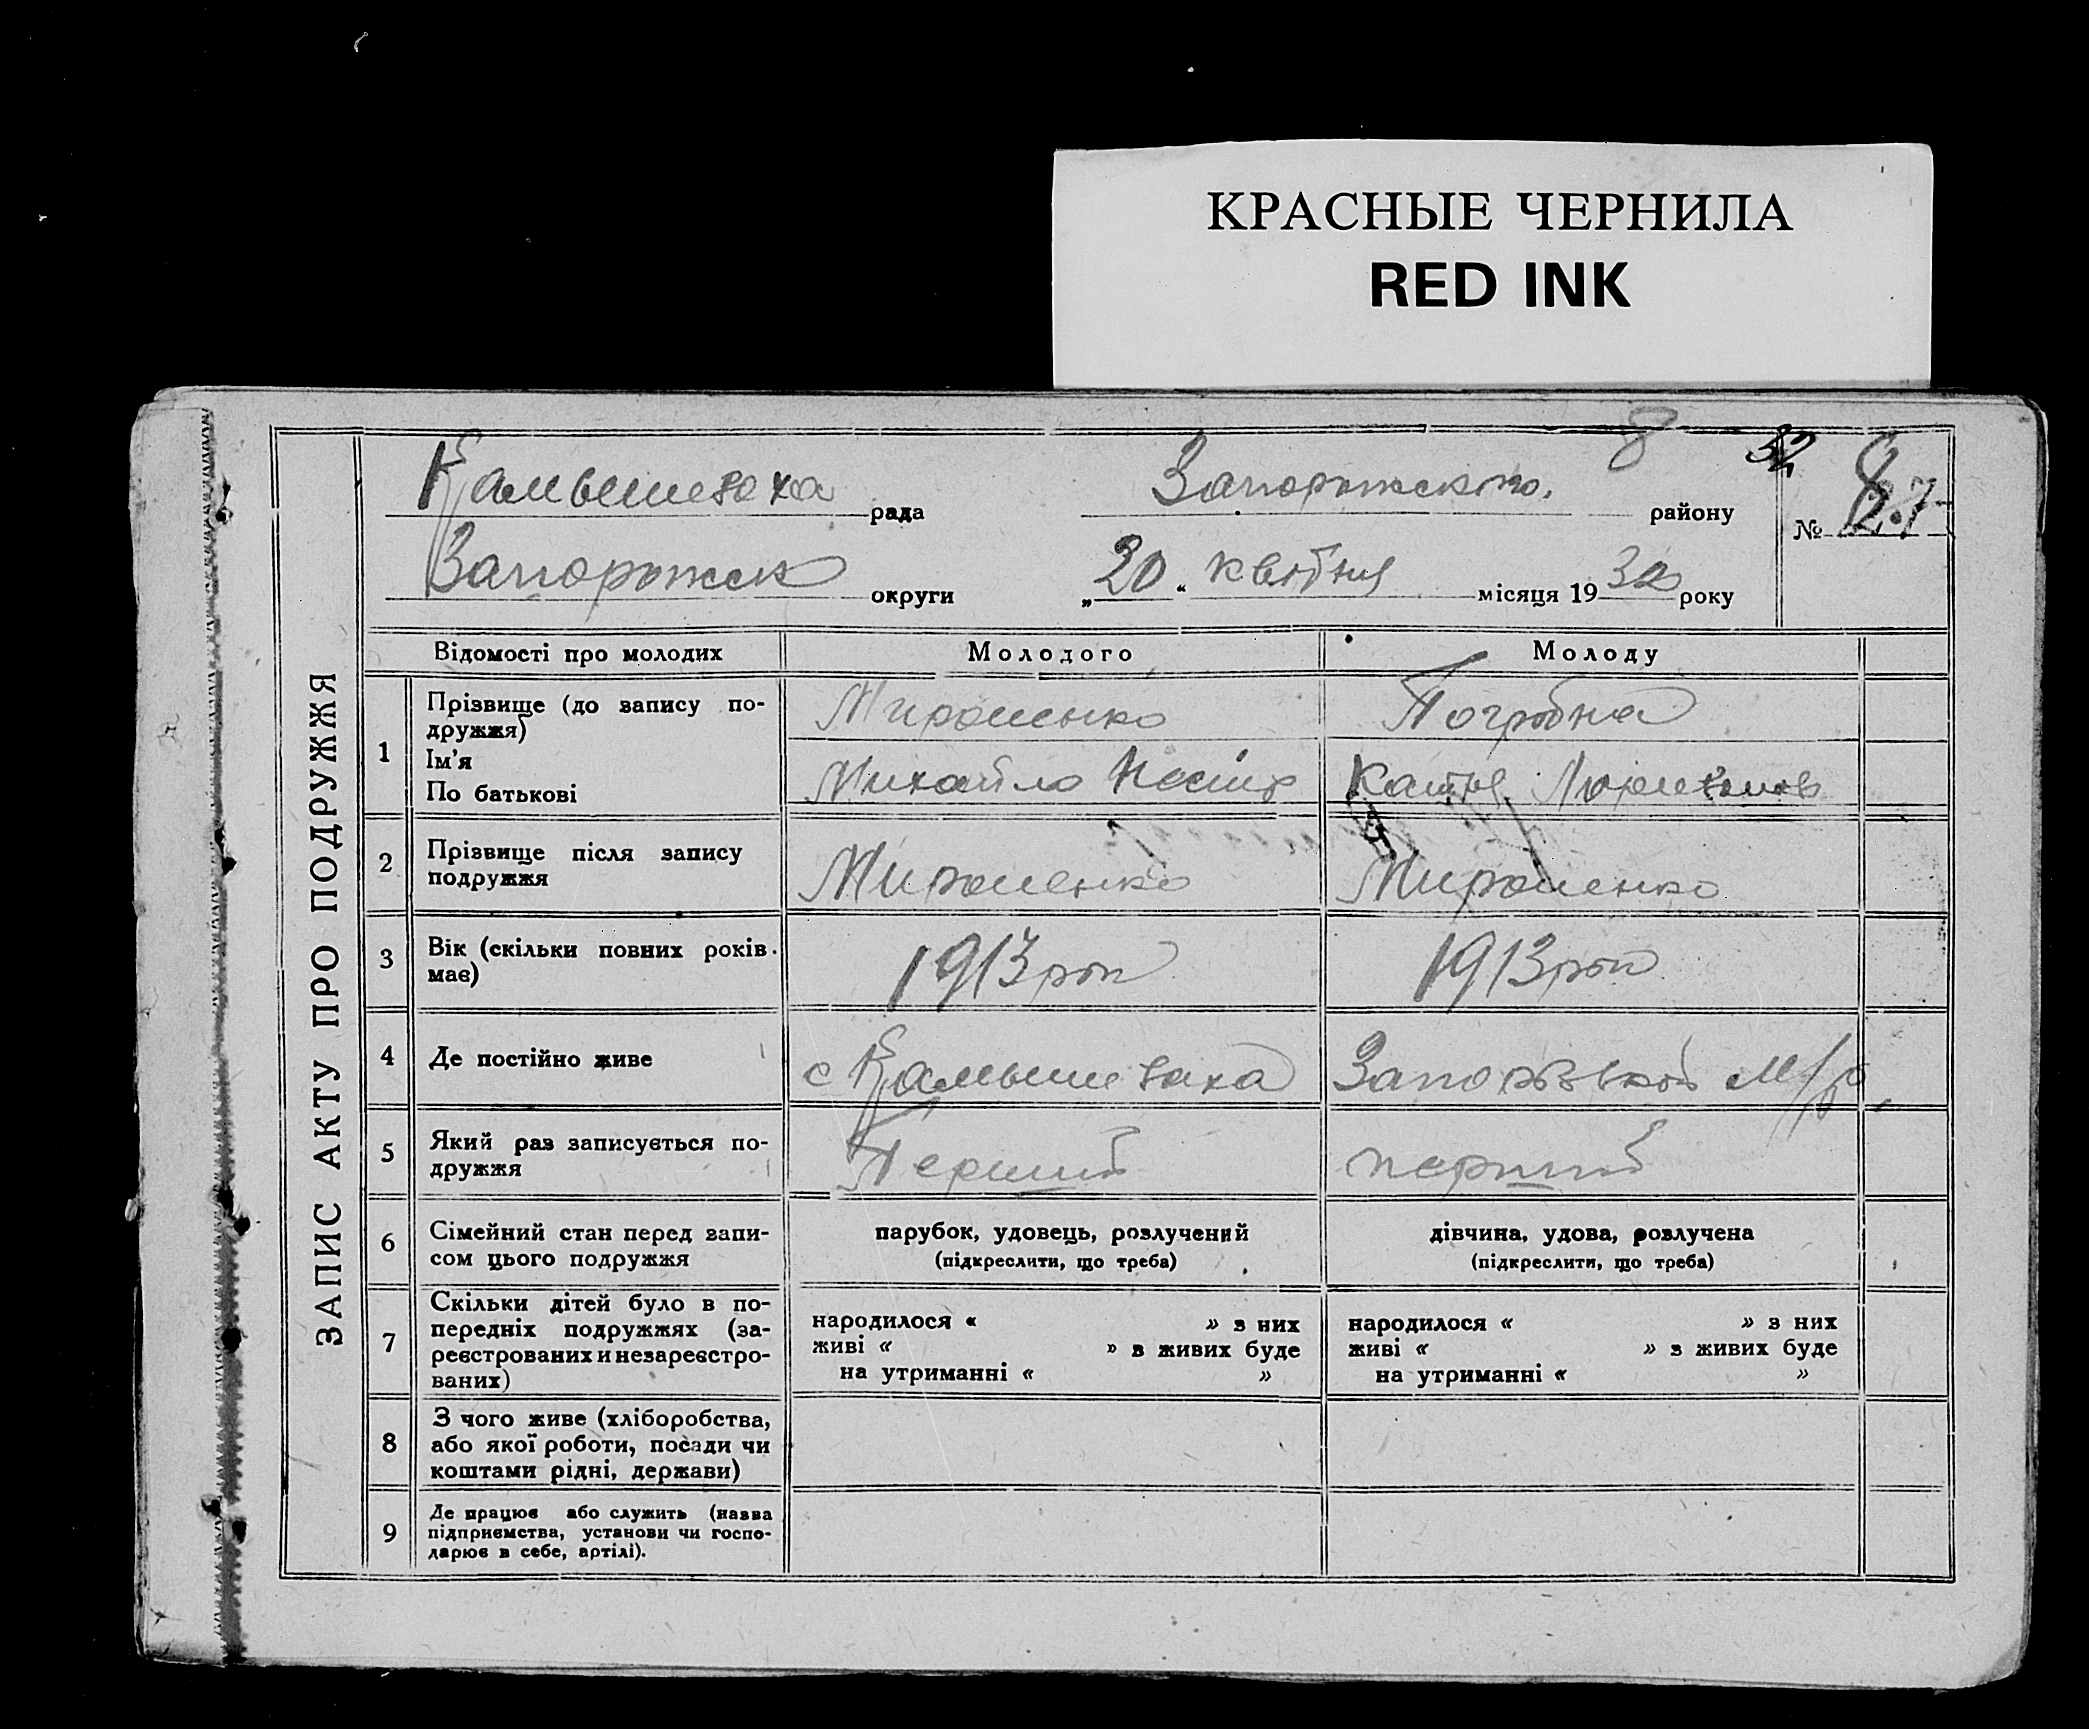 КРАСНЫЕ ЧЕРНИЛА
RED INK
8 32
Камышеваха рада Запорожского району № 8
Запорожск округи „20“ квітня місяця 1932 року
ЗАПИС АКТУ ПРО ПОДРУЖЖЯ
Відомості про молодих Молодого Молоду
1 Прізвище (до запису по-
дружжя)
Мироненко Погрібна
Ім'я
По батькові
Михайло Катря
2 Прізвище після запису
подружжя
Мироненко Мироненко
3 Вік (скільки повних років
має)
1913 рок 1913 рок
4 Де постійно живе с Камышеваха м/р
5 Який раз записується по-
дружжя
Перший перший
6 Сімейний стан перед запи-
сом цього подружжя
парубок, удовець, розлучений
(підкреслити, що треба)
дівчина, удова, розлучена
(підкреслити, що треба)
7 Скільки дітей було в по-
передніх подружжях (за-
реєстрованих и незареєстро-
ваних)
народилося « » з них
живі « » з живих буде
на утриманні « »
народилося « » з них
живі « » з живих буде
на утриманні « »
8 З чого живе (хліборобства,
або якої роботи, посади чи
коштами рідні, держави)
9 Де працює або служить (назва
підприємства, установи чи госпо-
дарює в себе, артілі).